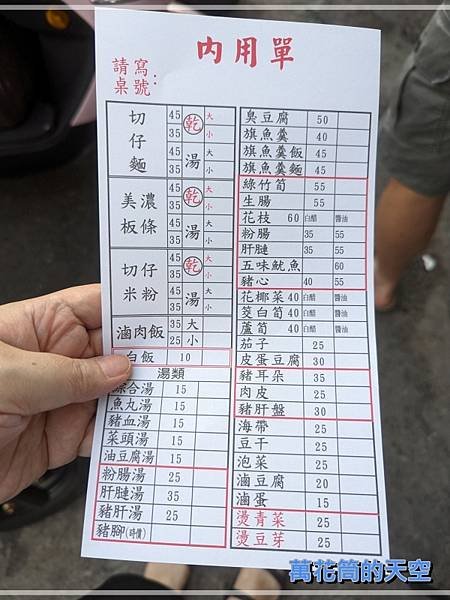 內用單
請寫
桌號：
切仔麵 乾 45 大
35 小
湯 45 大
35 小
美濃板條 乾 45 大
35 小
湯 45 大
35 小
切仔米粉 乾 45 大
35 小
湯 45 大
35 小
滷肉飯 35 大
25 小
白飯 10
湯類
綜合湯 15
魚丸湯 15
豬血湯 15
菜頭湯 15
油豆腐湯 15
粉腸湯 25
肝腱湯 35
豬肝湯 25
豬腳(時價)
臭豆腐 50
旗魚羹 40
旗魚羹飯 45
旗魚羹麵 45
綠竹筍 55
生腸 55
花枝 60 白醋 醬油
粉腸 35 55
肝腱 35 55
五味魷魚 60
豬心 40 55
花椰菜 40 白醋 醬油
筊白筍 40 白醋 醬油
蘆筍 40 白醋 醬油
茄子 25
皮蛋豆腐 30
豬耳朵 35
肉皮 25
豬肝盤 30
海帶 25
豆干 25
泡菜 25
滷豆腐 20
滷蛋 15
燙青菜 25
燙豆芽 25
萬花筒的天空